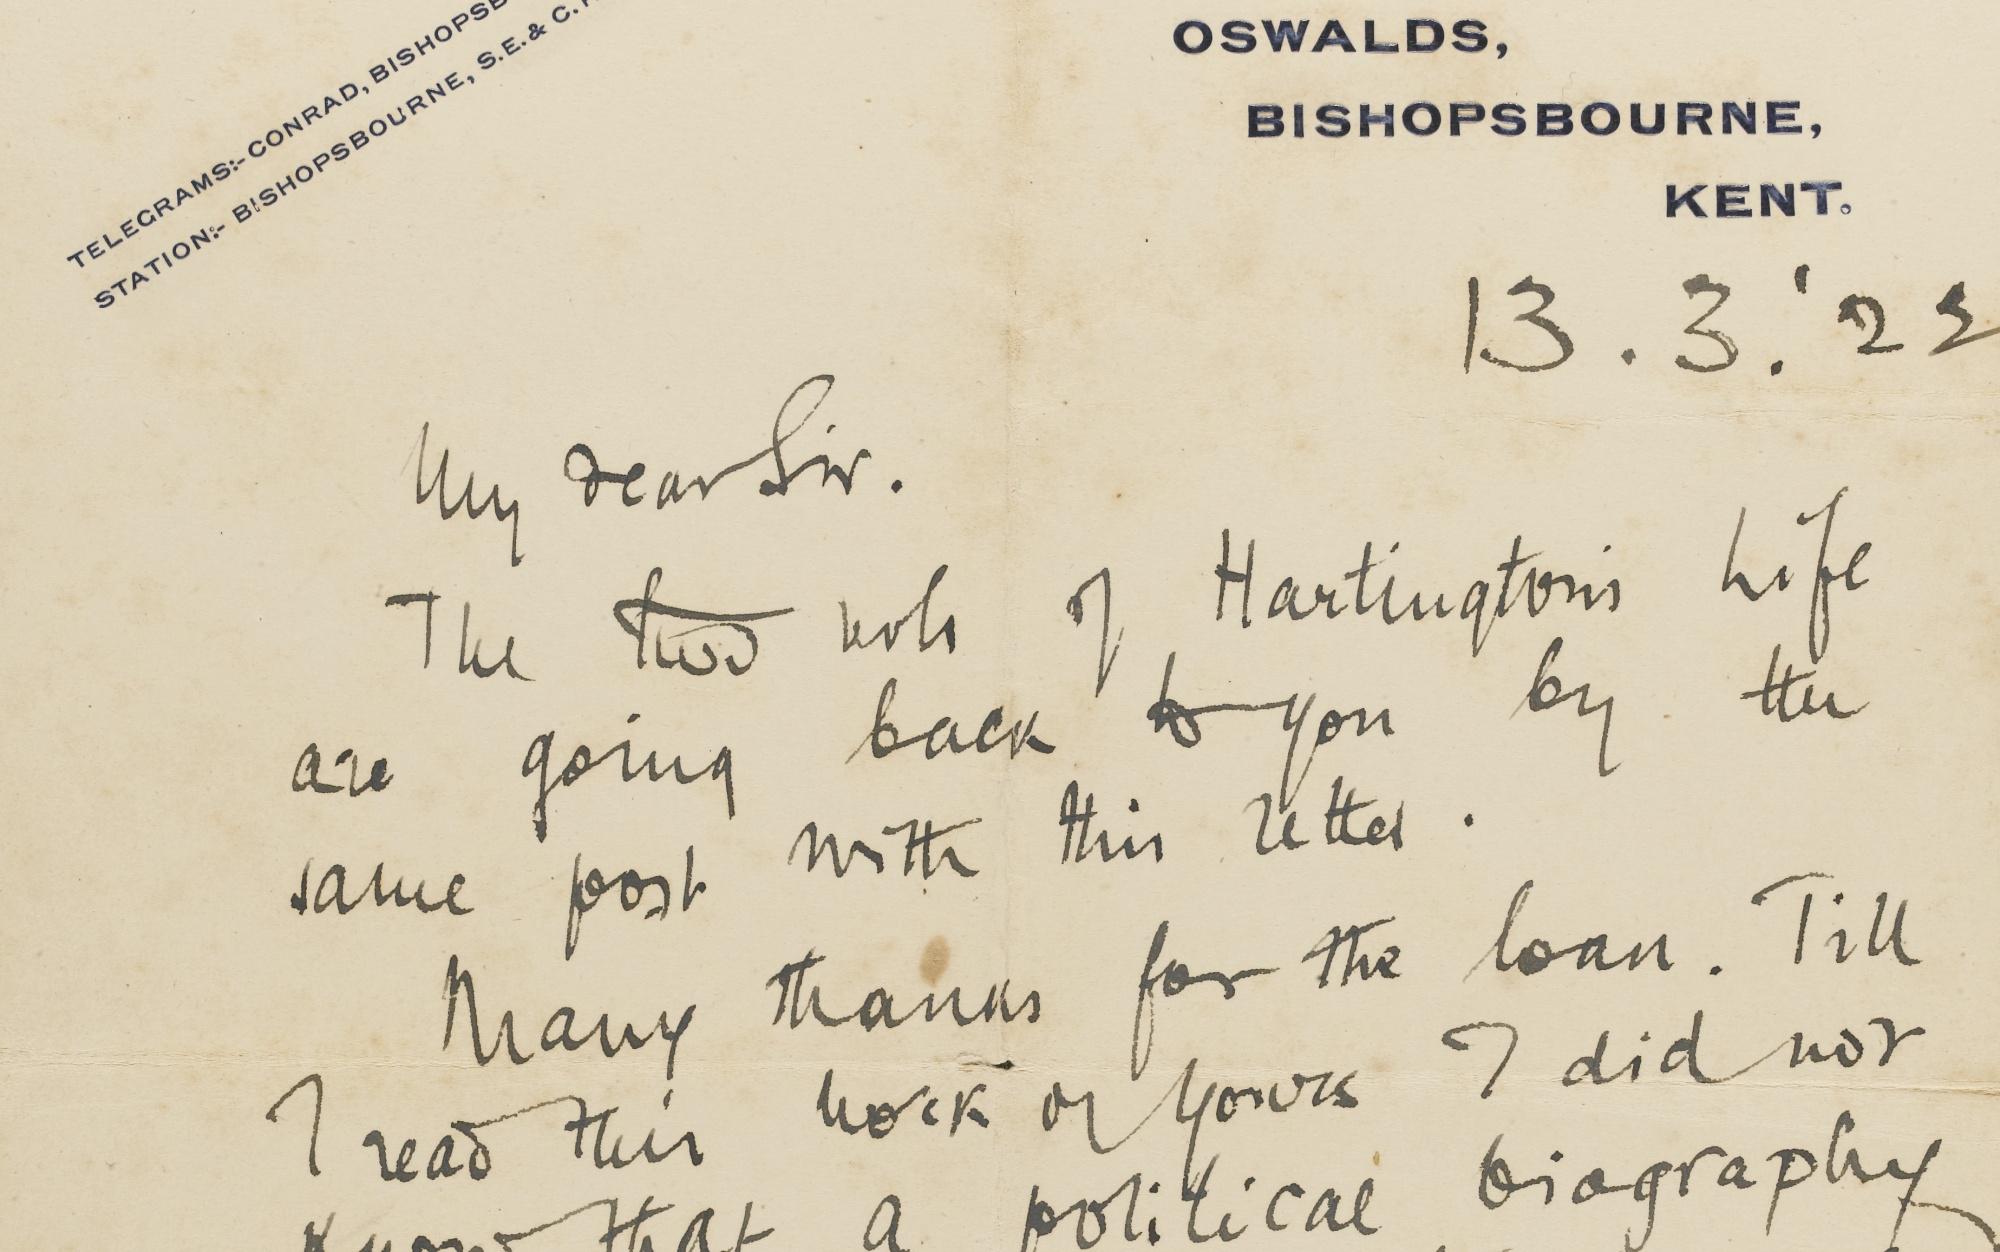 TELEGRAMS:- CONRAD, BISHOPSB
STATION:- BISHOPSBOURNE, S.E. & C.
OSWALDS,
BISHOPSBOURNE,
KENT.
13.3.'22
My dear Sir.
The two vols of Hartington's Life
are going back to you by the
same post with this letter.
Many thanks for the loan. Till
I read this work of yours I did not
know that a political biography